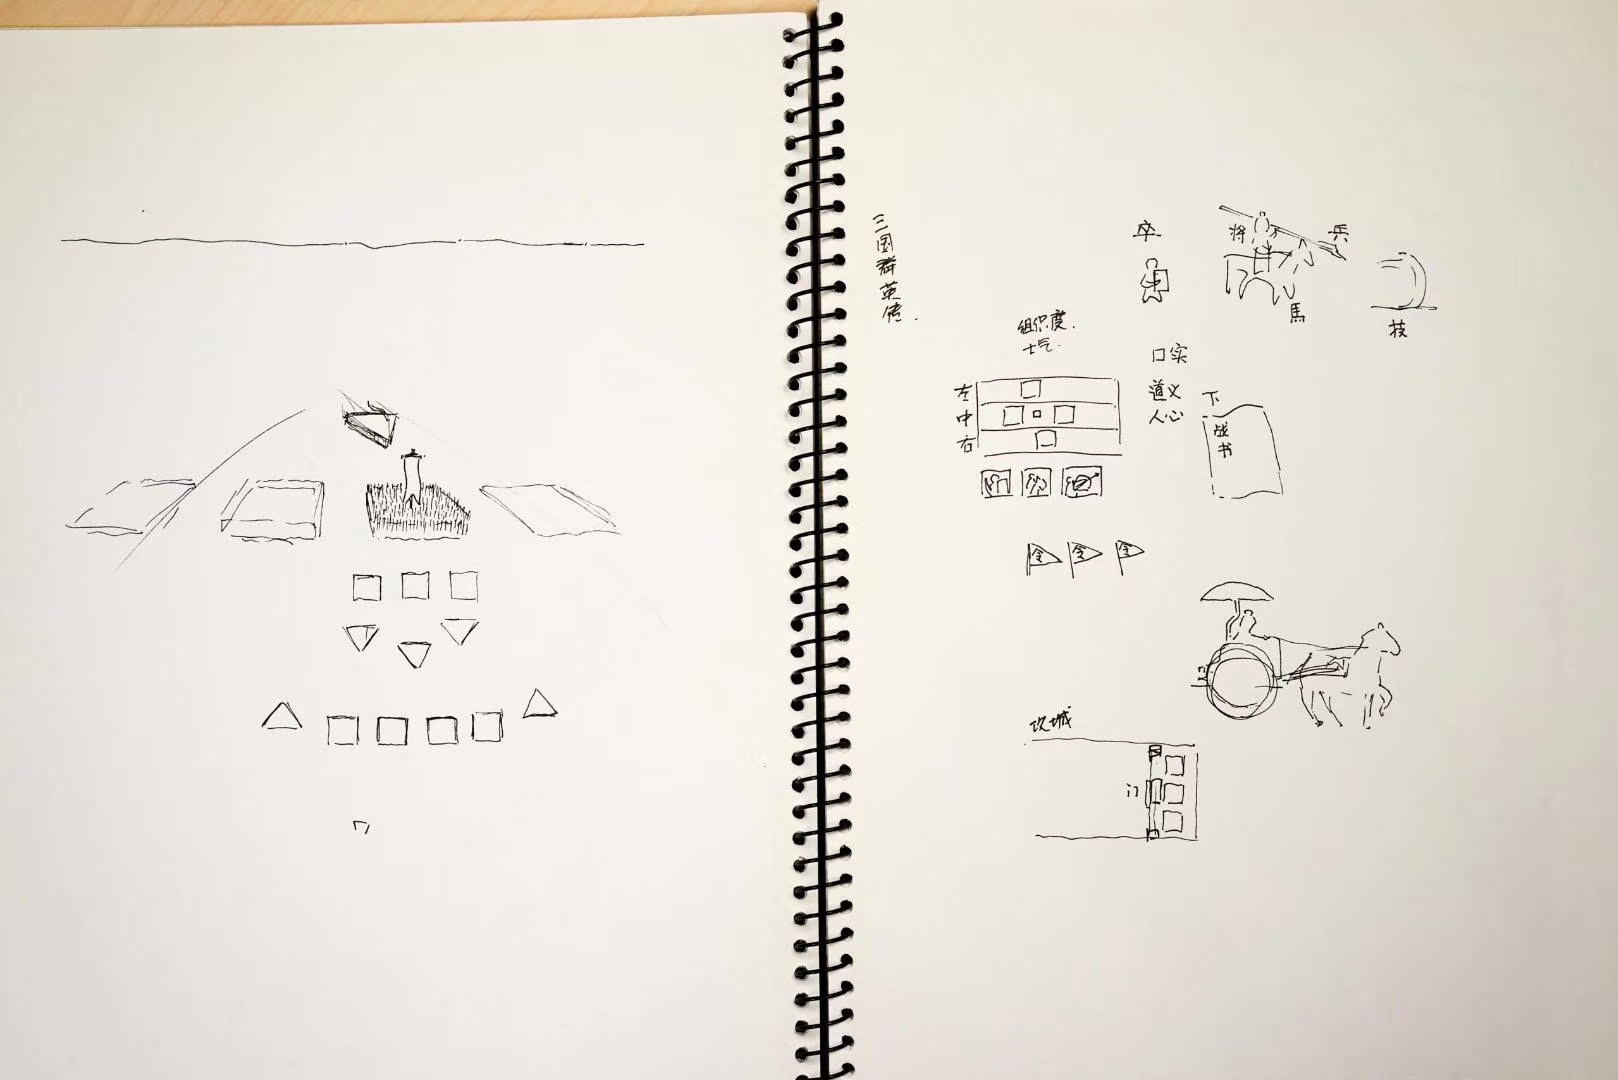 三国群英传.
卒
将
兵
馬
技
组织度.
士气.
口实
道义
人心
左
中
右
下
战书
令 令 令
攻城
门